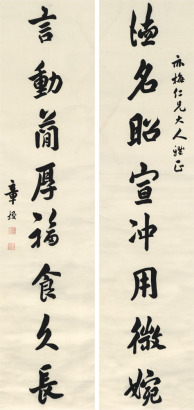 亦梅仁兄大人雅正
德名昭宣冲用微婉
言動简厚福食久長
章梫